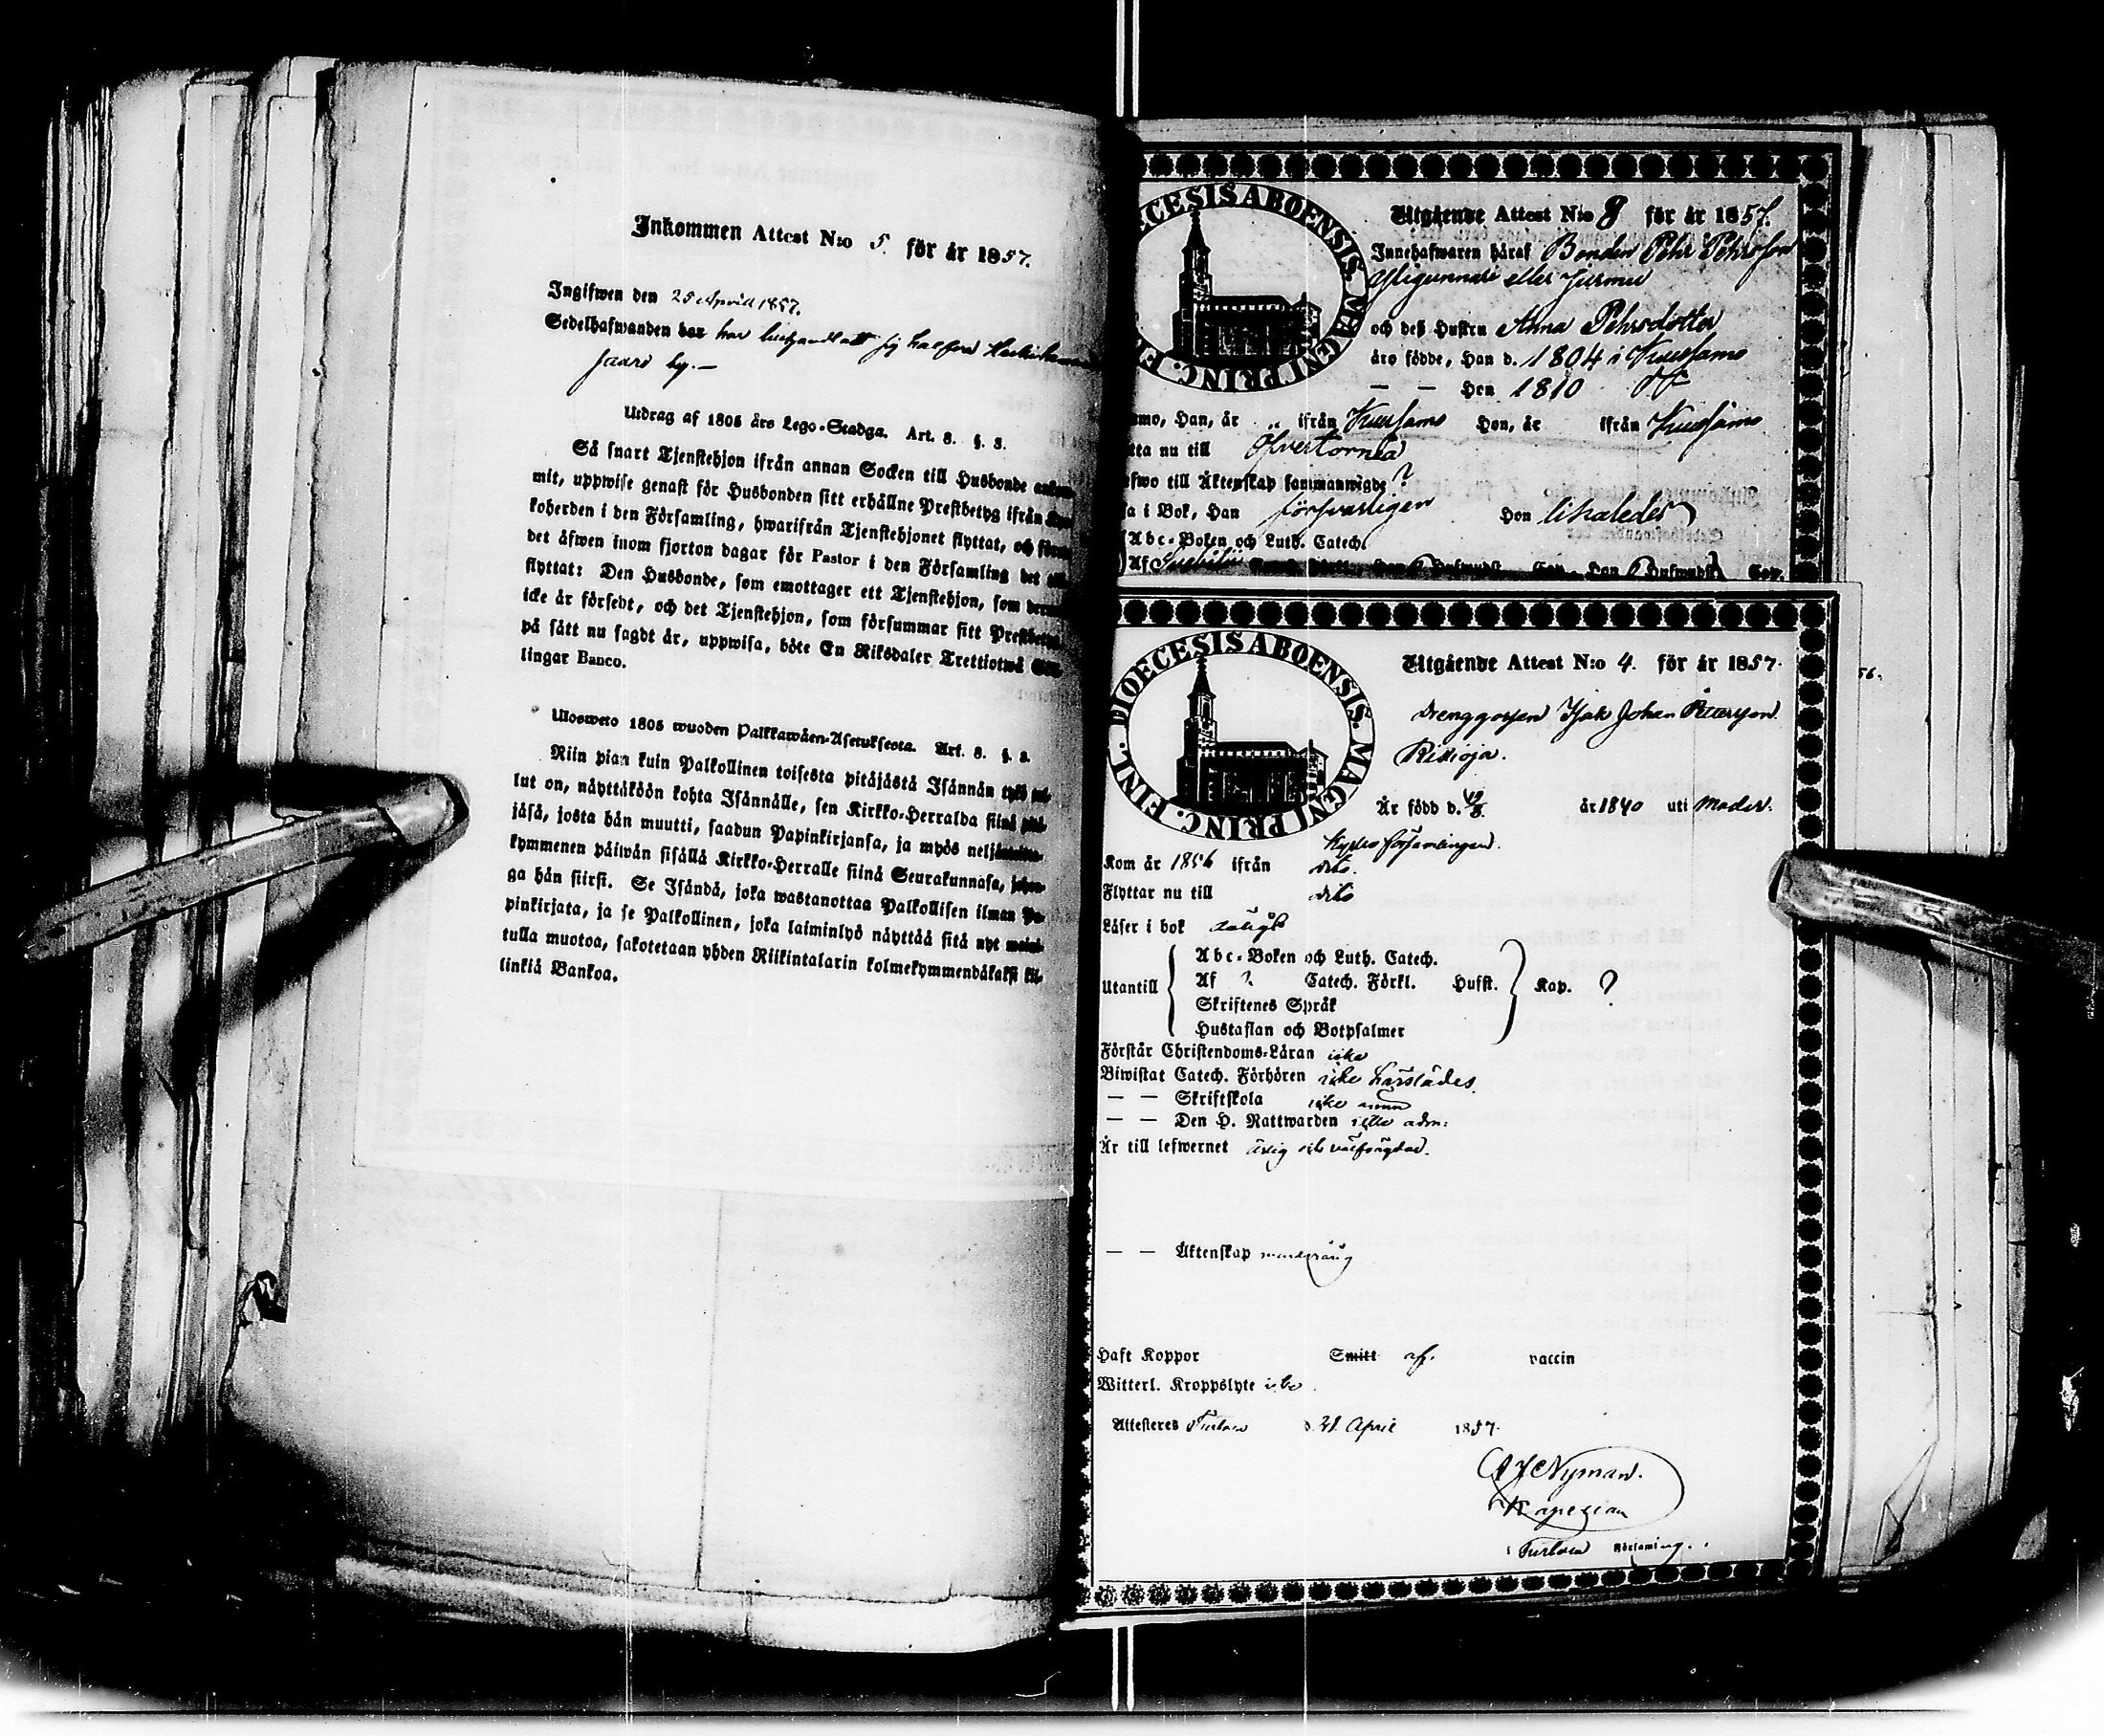 Inkommen Attest N:o 5. för år 1857.
Ingifwen den 25 April 1857.
Sedelhafwanden har har
by. —
Utdrag af 1805 års Lego-Stadga. Art. 8. §. 3.
Så snart Tjenstehjon ifrån annan Socken till Husbonde
mit, uppwise genast för Husbonden sitt erhållne Prestbetyg ifrån
koherden i den Församling, hwarifrån Tjenstehjonet flyttat, och
det äfwen inom fjorton dagar för Pastor i den Församling det
flyttat: Den Husbonde, som emottager ett Tjenstehjon, som
icke är försedt, och det Tjenstehjon, som försummar sitt
på sätt nu sagdt är, uppwisa, böte En Riksdaler Trettiotwå
lingar Banco.
Ulosweto 1805 wuoden Palkkawäen-Asetuksesta. Art. 8. §. 3.
Niin pian kuin Palkollinen toisesta pitäjästä Isännän tygö
lut on, näyttäköön kohta Isännälle, sen Kirkko-Herralda siinä
jäsä, josta hän muutti, saadun Papinkirjansa, ja myös
kymmenen päiwän sisällä Kirkko-Herralle siinä Seurakunnasa,
ga hän siirsi. Se Isändä, joka wastanottaa Palkollisen ilman
pinkirjata, ja se Palkollinen, joka laiminlyö näyttää sitä nyt
tulla muotoa, sakotetaan yhden Riikintalarin kolmekymmendäkaksi
linkiä Bankoa.
DIOECESIS ABOENSIS. MAGNI PRINC. FINL.
Utgående Attest N:o 8 för år 1857.
Innehafwaren häraf Bonden Pehr Pehrsson
eller
och deß Hustru Anna Pehrsdotter
äro födde, Han d. 1804 i Kuusamo
— — Hon 1810
Han, år „ ifrån Kuusamo Hon, år ifrån Kuusamo
nu till Öfvertorneå
till Äktenskap sammanwigde ?
i Bok, Han försvarligen Hon likaledes
Abc-Boken och Luth. Catech.
Af
DIOECESIS ABOENSIS. MAGNI PRINC. FINL.
Utgående Attest N:o 4. för år 1857.
56.
Drenggossen Isak Johan Pettersson
Ritioja.
Är född d. år 1840 uti Moder-
kyrko församlingen.
Kom år 1856 ifrån dito.
Flyttar nu till dito
Läser i bok dåligt
Utantill
Abc-Boken och Luth. Catech.
Af ? Catech. Förkl. Hufst. Kap. ?
Skriftenes Språk
Hustaflan och Botpsalmer
Förstår Christendoms-Läran icke
Biwistat Catech. Förhören icke härstädes
— — Skriftskola icke
— — Den H. Nattwarden icke adm:
Är till lefwernet ärlig och välfrägdad.
— — Äktenskap
Haft Koppor Smitt af. vaccin
Witterl. Kroppslyte icke
Attesteres Turtola d. 21 April 1857.
Nyman.
Kapellan
Turtola Församling.